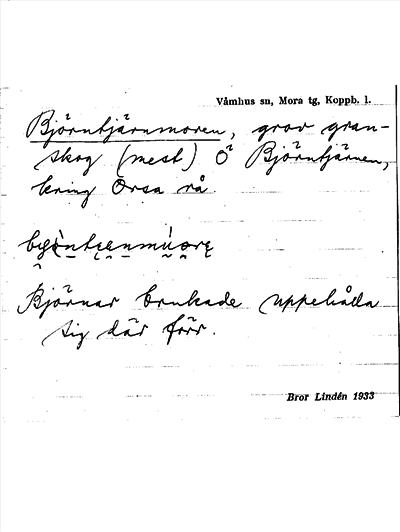 Våmhus sn, Mora tg, Koppb. l.
Björntjärnmoren, grov gran-
skog (mest) Ö Björntjärnen,
kring Orsa rå.
Björnar brukade uppehålla
sig där förr.
Bror Lindén 1933